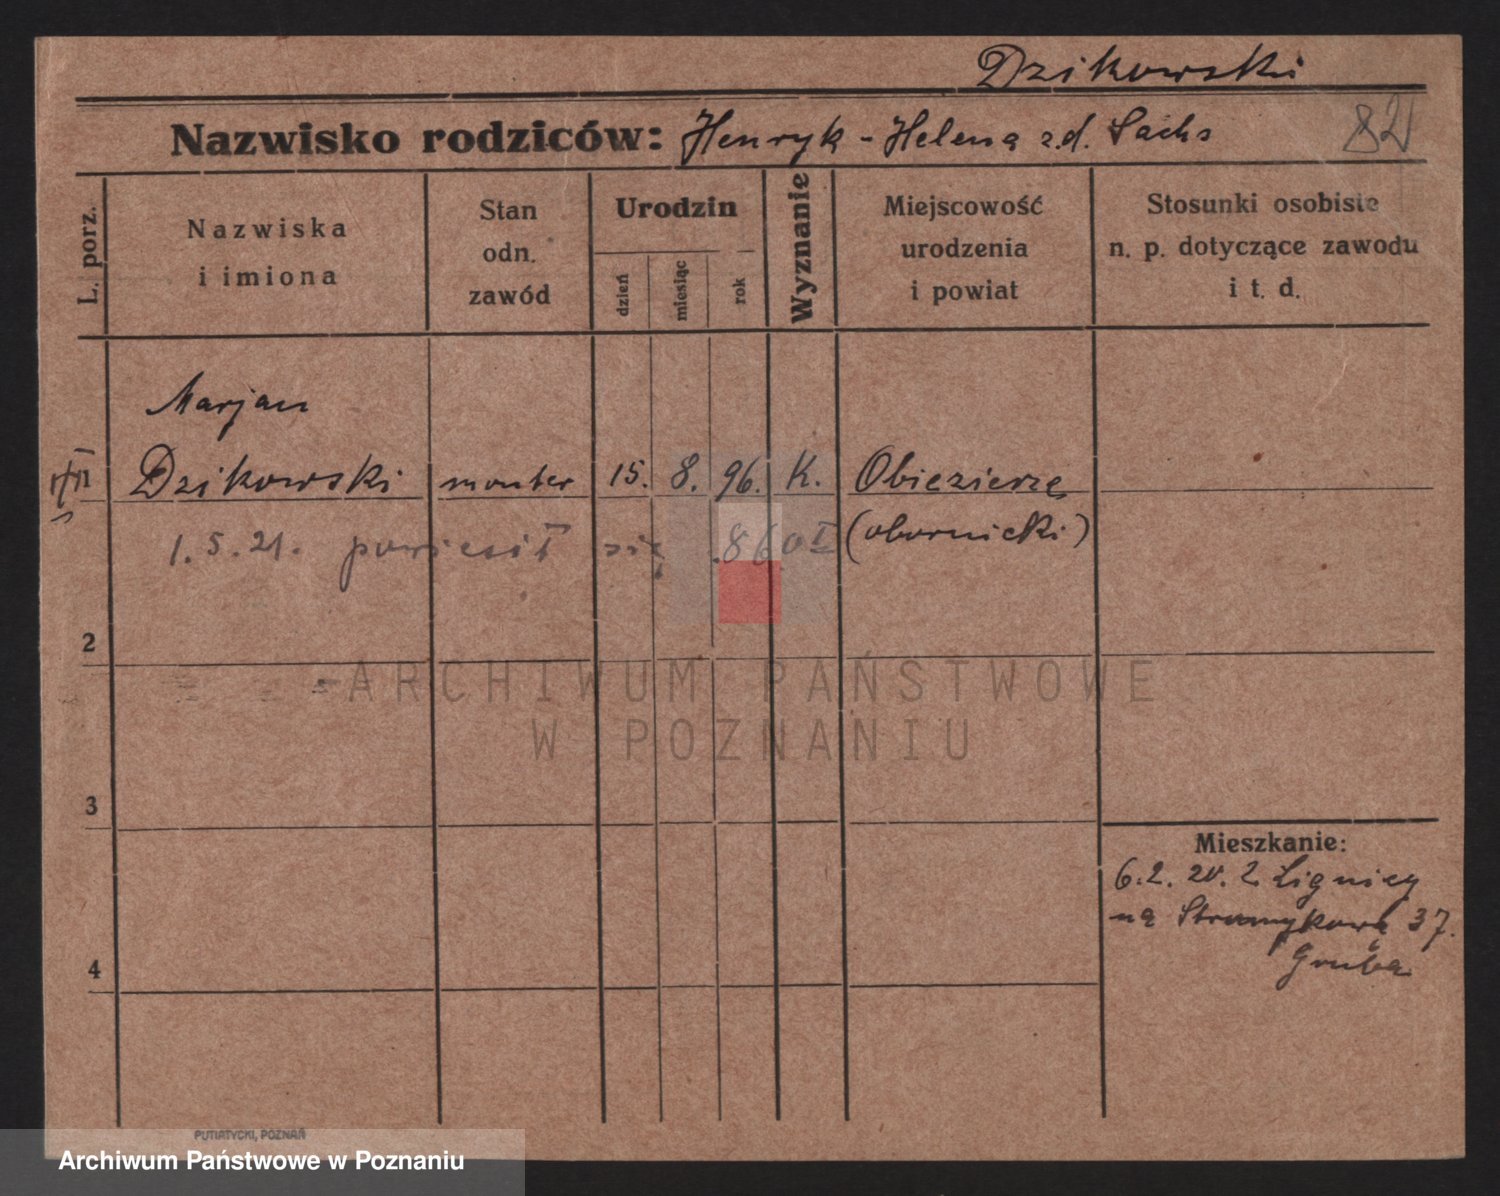 Dzikowski
Nazwisko rodziców: Henryk - Helena z.d. Sachs
82
L. porz.
Nazwiska
i imiona
Stan
odn.
zawód
Urodzin
dzień
miesiąc
rok
Wyznanie
Miejscowość
urodzenia
i powiat
Stosunki osobiste
n. p. dotyczące zawodu
i t. d.
Marjan
Dzikowski monter 15. 8. 96. K. Obiezierze
(obornicki)
1.5.21. powiesił się
2
3
4
Mieszkanie:
6.2. 20. z Lignicy
na Strumykową 37.
Gruba
ARCHIWUM PAŃSTWOWE
W POZNANIU
PUTIATYCKI, POZNAŃ
Archiwum Państwowe w Poznaniu